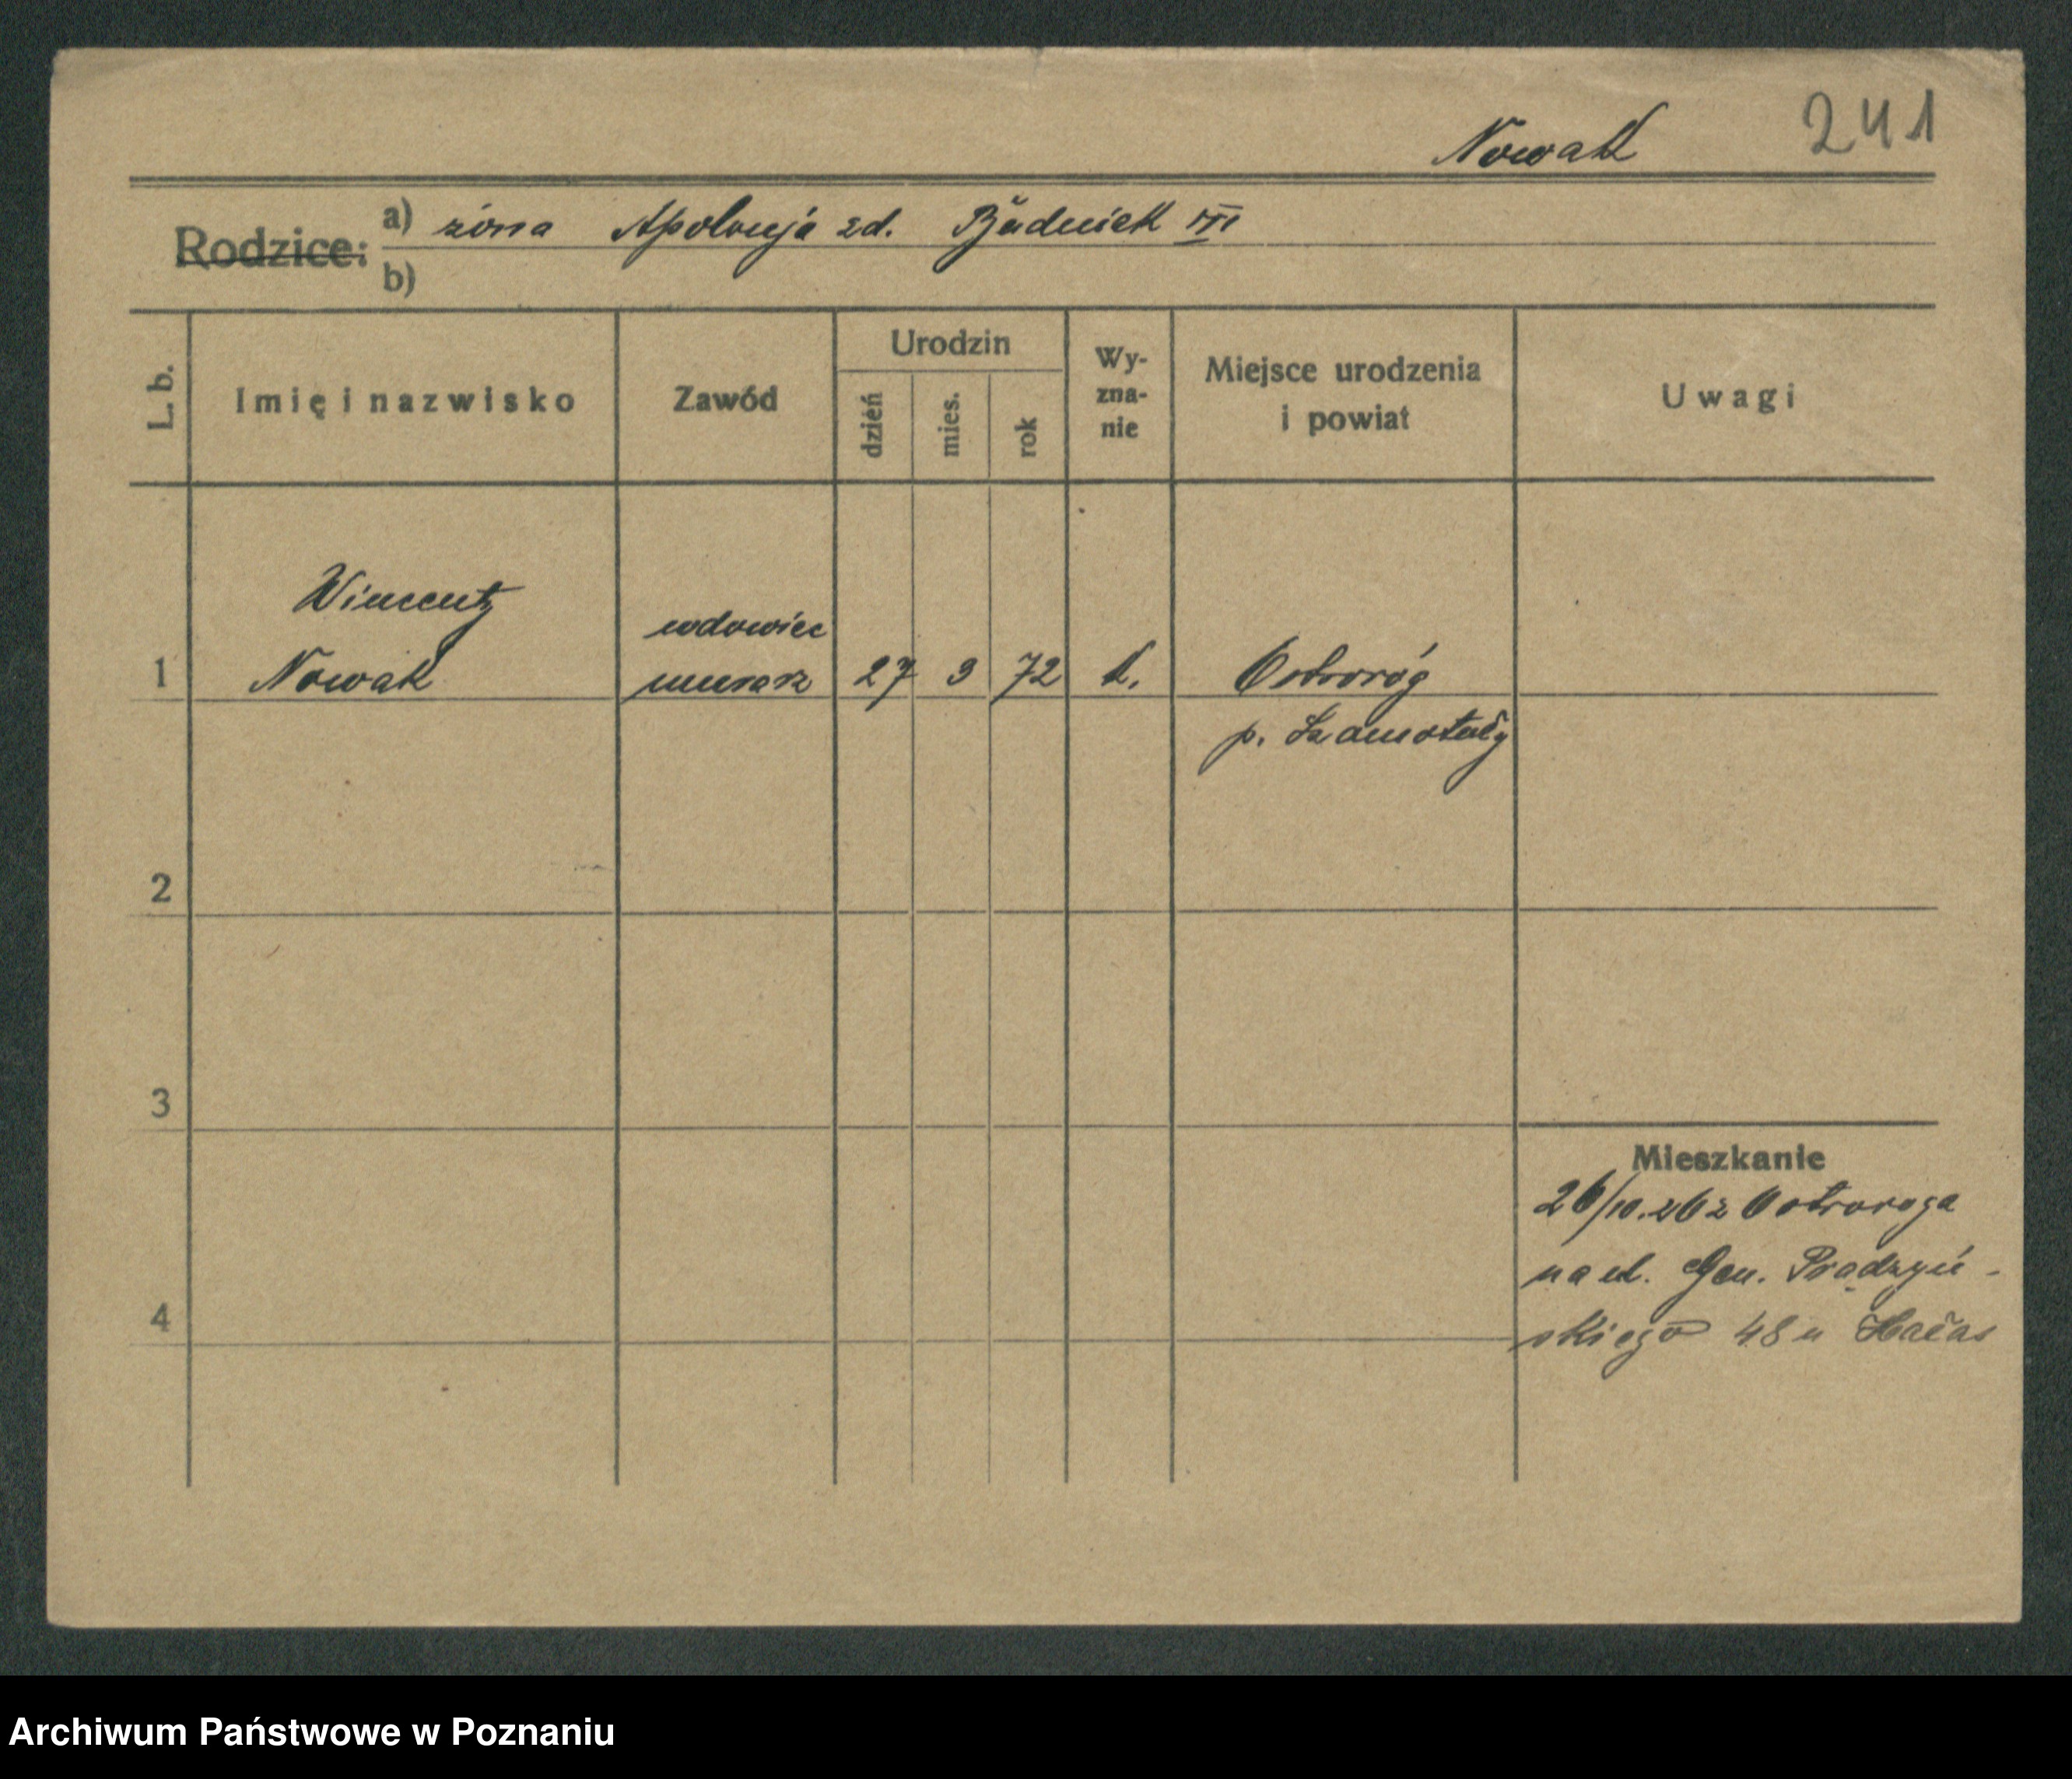 241
Nowak
Rodzice:
a) żona Apolonja zd. III
b)
L. b.
Imię i nazwisko
Zawód
Urodzin
dzień
mies.
rok
Wy-
zna-
nie
Miejsce urodzenia
i powiat
Uwagi
Wincenty
wdowiec
1 Nowak murarz 27 3 72 k. Ostroróg
p. Szamotuły
2
3
Mieszkanie
26/10. z Ostroroga
na ul. Gen. Prądzyń-
4
skiego 48 u
Archiwum Państwowe w Poznaniu